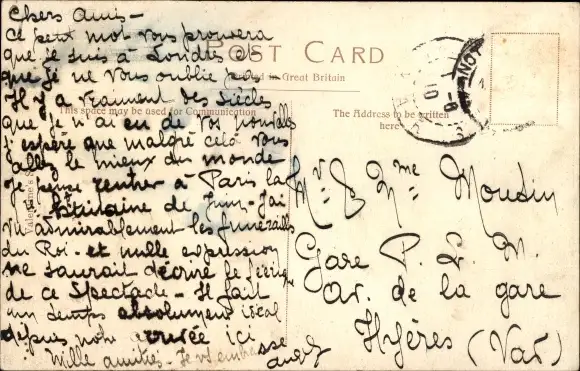 Chers amis -
Ce petit mot vous prouvera
que je suis à Londres et
que je ne vous oublie pas
Il y a vraiment des siècles
que je n'ai eu de vos nouvelles
j'espère que malgré cela vous
allez le mieux du monde
Je pense rentrer à Paris la
huitaine de Juin - J'ai
vu admirablement les funérailles
du Roi - et nulle expression
ne saurait décrire le féerique
de ce spectacle - Il fait
un temps absolument idéal
depuis notre arrivée ici
Mille amitiés - Je vs embrasse
POST CARD
Printed in Great Britain
This space may be used for Communication
The Address to be written
here
Mr & Mme
Gare P. L. M.
av. de la gare
Hyères (Var)